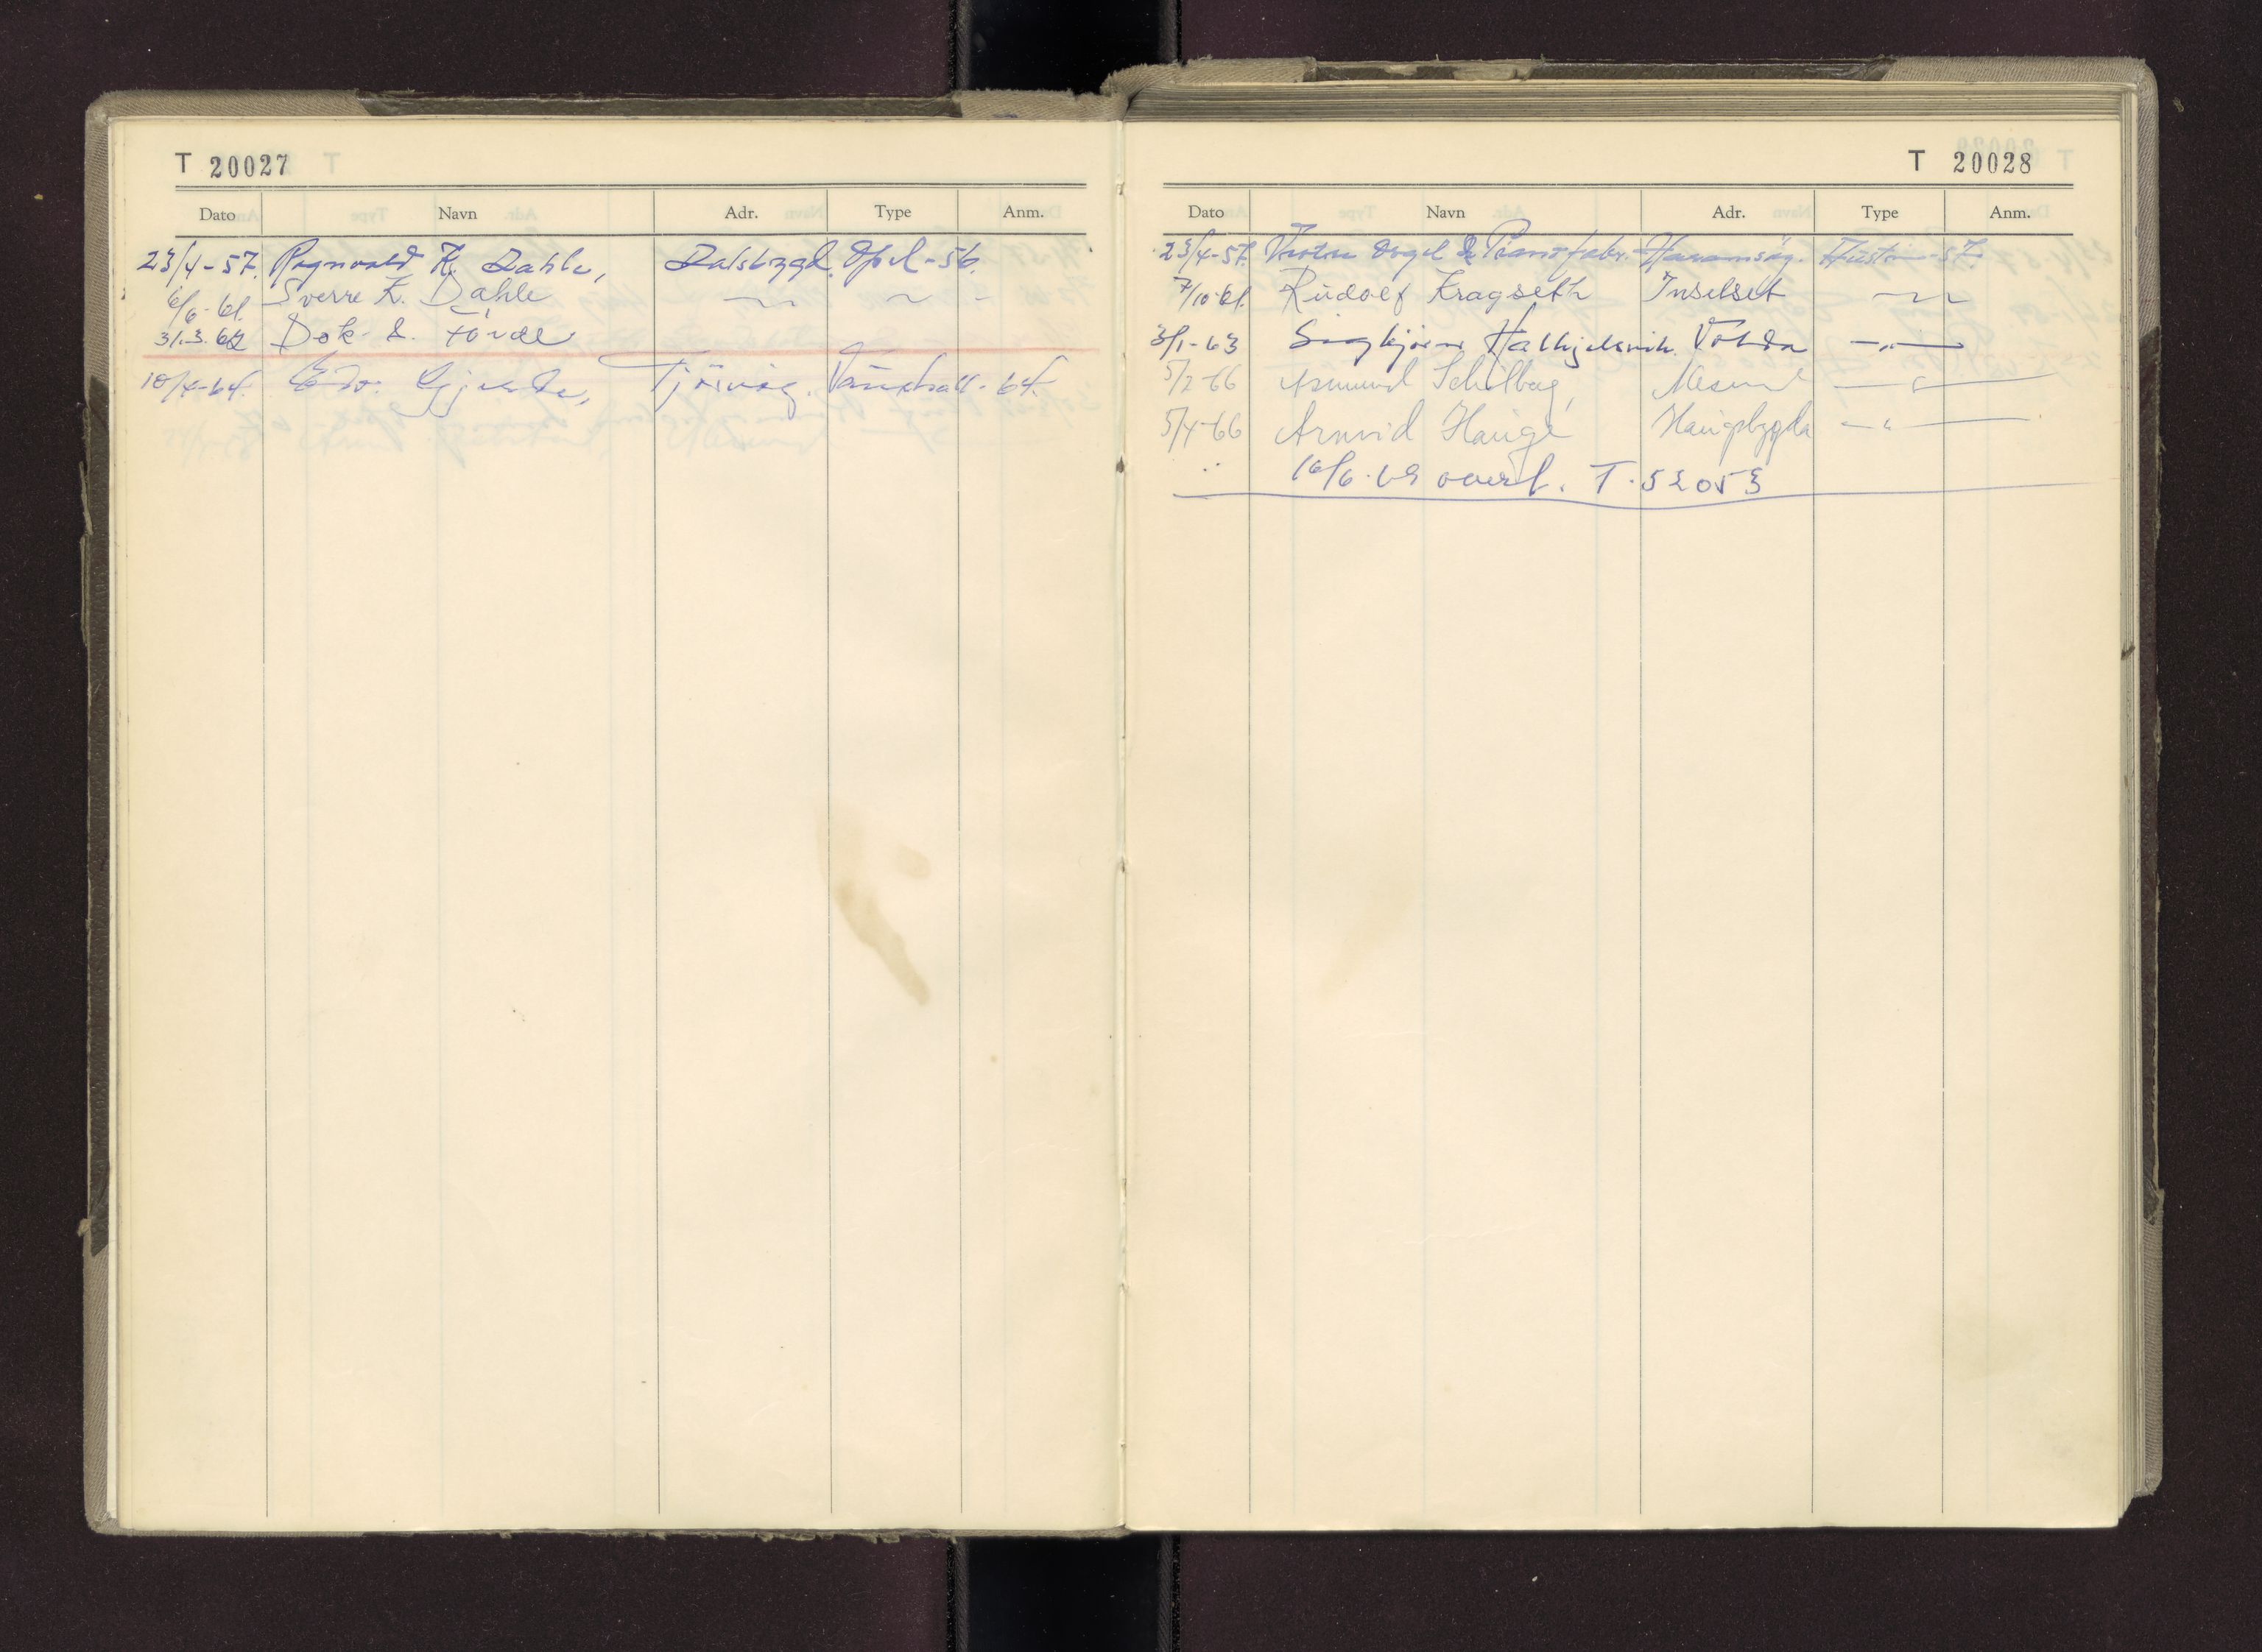 T 20027
Dato Navn Adr. Type Anm.
23/4-57. Ragnvald K. Dahle, Dalsbygd. Opel-56.
6/6-61. Sverre K. Dahle
31.3.62 Dok. &
10/4-64. Edv. Gjerde, Tjörvåg. Vauxhall-64.
T 20028
Dato Navn Adr. Type Anm.
23/4-57. Orgel & Pianofabr. Haramsöy. Austin-57.
7/10-61. Rudolf Kragseth Inselset
3/1-63 Sigbjørn Halkjelsvik. Volda -"-
5/2-66 Asmund -"-
5/4-66 Arnvid Hauge Haugsbygda -"-
16/6.69 overf. T.52053